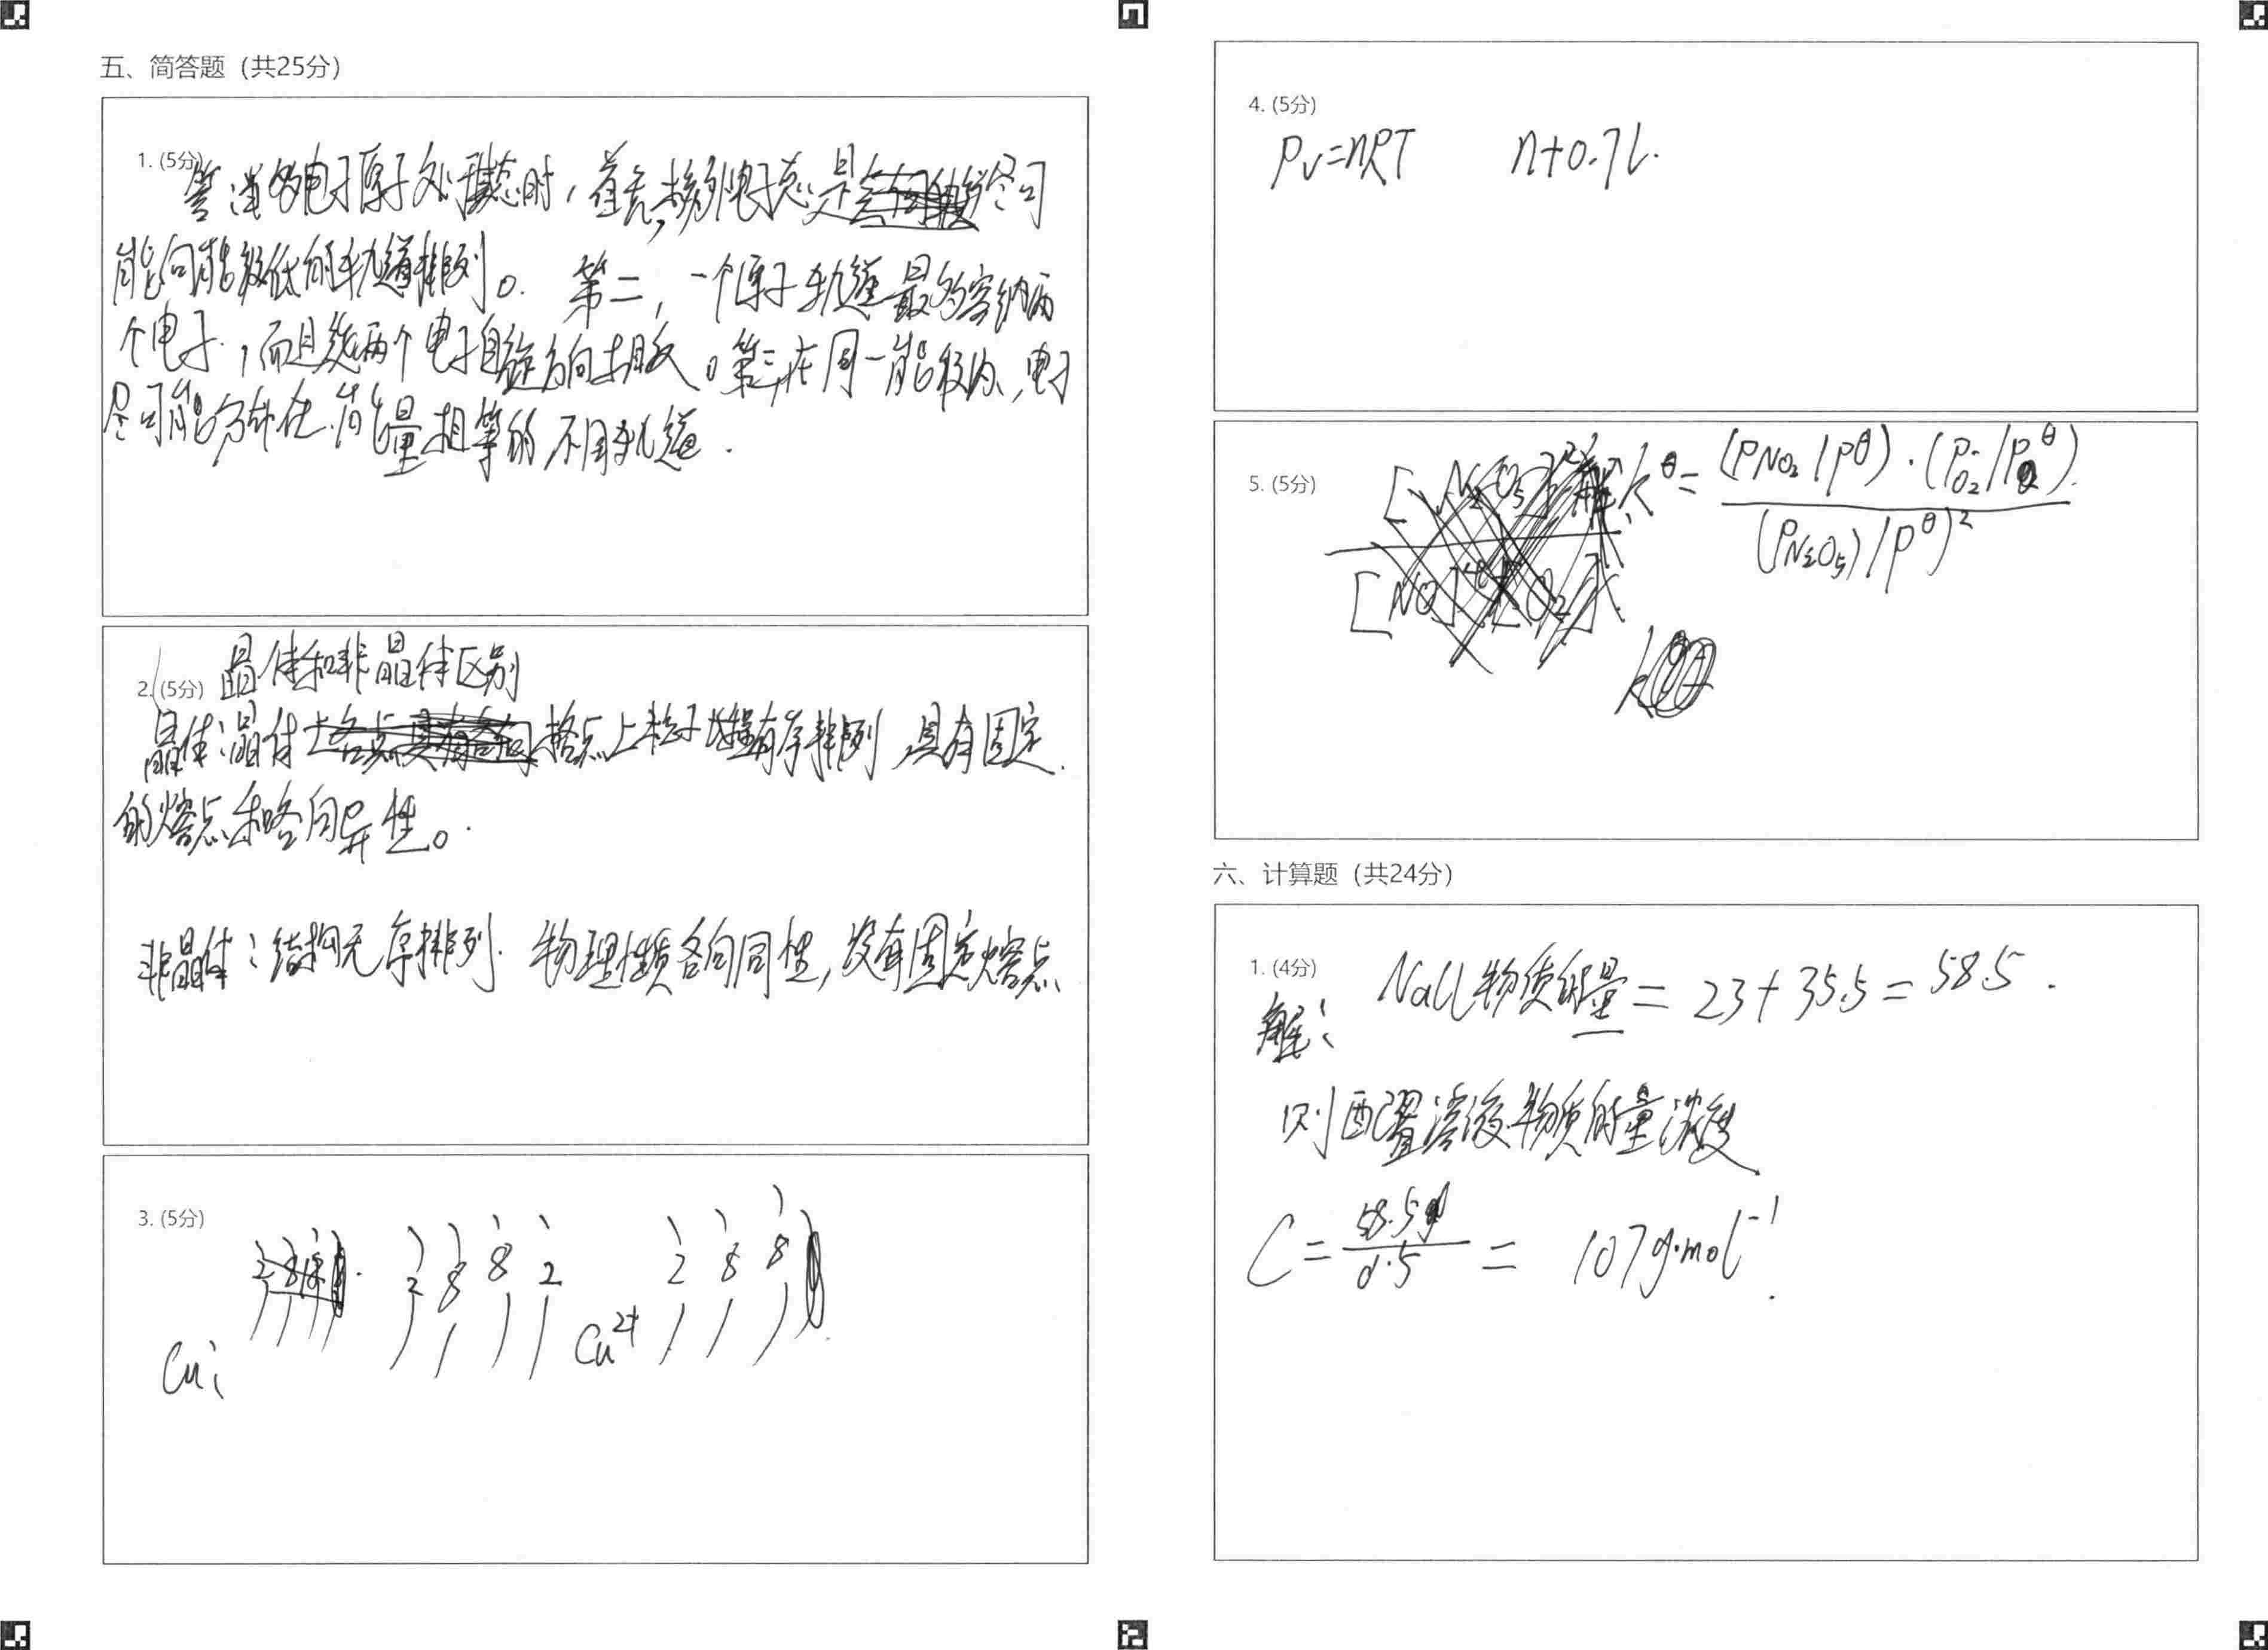 五、简答题（共25分）
1. (5分)
答：当多电子原子处于基态时，首先，核外电子总是尽可
能向能级低的轨道排列。第二，一个原子轨道最多容纳两
个电子，而且这两个电子自旋方向相反。第三，在同一能级内，电子
尽可能分布在能量相等的不同轨道.
2. (5分) 晶体和非晶体区别
晶体：晶体 格点上粒子 有序排列 具有固定
的熔点和各向异性。
非晶体：结构无序排列. 物理性质各向同性，没有固定熔点
3. (5分)
2 8 8 2 2 8 8
Cu: Cu²⁺
4. (5分)
PV=nRT n+0.7l.
5. (5分) 解 K^θ= (P_NO₂/P^θ)·(P_O₂/P^θ)
(P_N₂O₅)/P^θ)²
六、计算题（共24分）
1. (4分) NaCl物质的量 = 23+35.5=58.5.
解：
则配置溶液物质的量浓度
C= 58.5g / 0.5 = 107g·mol⁻¹.